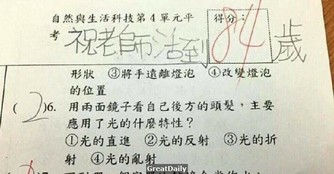 自然與生活科技第4單元平
得分：
考 祝老師活到 84 歲
形狀 ③將手遠離燈泡 ④改變燈泡
的位置
(2)6. 用兩面鏡子看自己後方的頭髮，主要
應用了光的什麼特性？
①光的直進 ②光的反射 ③光的折
射 ④光的亂射
GreatDaily